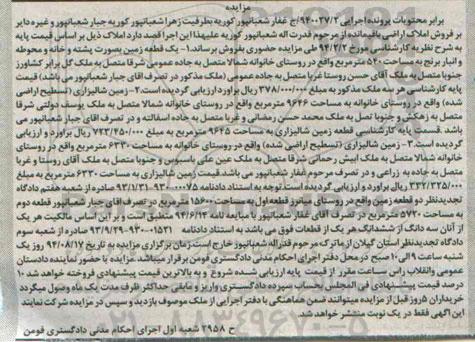 مزایده
برابر محتویات پرونده اجرایی ۹۴۰۰۲۷/۲/ج غفار شعبانپور کوریه بطرفیت زهرا شعبانپور کوریه جبار شعبانپور و غیره دایر
بر فروش املاک اراضی باقیمانده از مرحوم قدرت اله شعبانپور کوریه علیهذا این اجرا قصد دارد املاک ذیل بر اساس قیمت پایه
به شرح نظریه کارشناسی مورخ ۹۴/۲/۲ طی مزایده حضوری بفروش برساند. ۱- یک قطعه زمین بصورت پشته و خانه و محوطه
و انبار برنج به مساحت ۵۴۰ مترمربع واقع در روستای خانوانه شمالا متصل به جاده عمومی شرقا متصل به ملک گل برابر کشاورز
جنوبا متصل به ملک آقای حسن روستا غربا متصل به جاده عمومی (ملک مذکور در تصرف آقای جبار شعبانپور می باشد) قیمت
پایه کارشناسی هر سه ملک مذکور به مبلغ ۳۷۸/۰۰۰/۰۰۰ ریال برآورد ارزیابی گردیده است. ۲- زمین شالیزاری (تسطیح اراضی
شده) واقع در روستای خانوانه به مساحت ۹۶۴۶ مترمربع واقع در روستای خانوانه شمالا متصل به ملک یوسف دولتی شرقا
متصل به زهکش و جنوبا تصل به ملک محمد حسن رمضانی و غربا متصل به جاده اسفالته و در تصرف آقای جبار شعبانپور می
باشد .قسمت پایه کارشناسی قطعه زمین شالیزاری به مساحت ۹۶۴۵ مترمربع به مبلغ ۷۲۳/۴۵۰/۰۰۰ ریال برآورد و ارزیابی
گردیده است. ۳- زمین شالیزاری (تسطیح اراضی شده) واقع در روستای خانوانه به مساحت ۶۳۳۰ مترمربع واقع در روستای
خانوانه شمالا متصل به ملک ابیش رحمانی شرقا متصل به ملک عین علی باسبوس و جنوبا متصل به ملک آقای روستا و غربا
متصل به جاده به زراعی و در تصرف مرحوم غفار شعبانپور می باشد قیمت زمین شالیزاری به مساحت ۶۳۳۰ مترمربع به مبلغ
۳۳۲/۳۲۵/۰۰۰ ریال برآورد و ارزیابی گردیده است. توجه به استناد دادنامه ۹۳۰۰۰۷۵-۹۳/۱/۳۱ صادره از شعبه هفتم دادگاه
تجدیدنظر دو قطعه زمین واقع در روستای میانرز قطعه اول به مساحت ۱۵۶۰۰ مترمربع در تصرف آقای جبار شعبانپور قطعه دوم
به مساحت ۵۷۲۰ مترمربع در تصرف آقای غفار شعبانپور با مبایعه نامه ۹۴/۶/۱۴ منطبق است و بر این اساس مالکیت هر یک
از آنان سه دانگ از ششدانگ هر یک از قطعات فوق می باشد به استناد دادنامه ۹۳۰۰۱۵۲۱-۹۳/۹/۲۹ صادره از شعبه سوم
دادگاه تجدیدنظر استان گیلان از ماترک مرحوم قدراله شعبانپور خارج است.زمان برگزاری مزایده به تاریخ ۹۴/۰۸/۱۷ روز یک
شنبه ساعت ۹ الی ۱۰ صبح در محل دفتر اجرای احکام مدنی دادگستری فومن برقرار میباشد.مزایده با حضور نماینده دادستان
عمومی وانقلاب راس ساعت مقرر از قیمت پایه ارزیابی شده شروع و به بالاترین قیمت پیشنهادی فروخته خواهد شد ۱۰
درصد قیمت پیشنهادی فی المجلس بحساب سپرده دادگستری واریز و مابقی حداکثر ظرف مدت یک ماه وصول میگردد
خریداران ۵روز قبل از مزایده میتوانند ضمن هماهنگی با دفتر اجرایی از ملک موصوف بازدید و سپس در مزایده شرکت نمایند
این آگهی فقط در یک نوبت منتشر خواهد شد.
ح ۳۹۵۸ شعبه اول اجرای احکام مدنی دادگستری فومن
۰۲۱-۸۸۳۴۹۶۷۰-۵